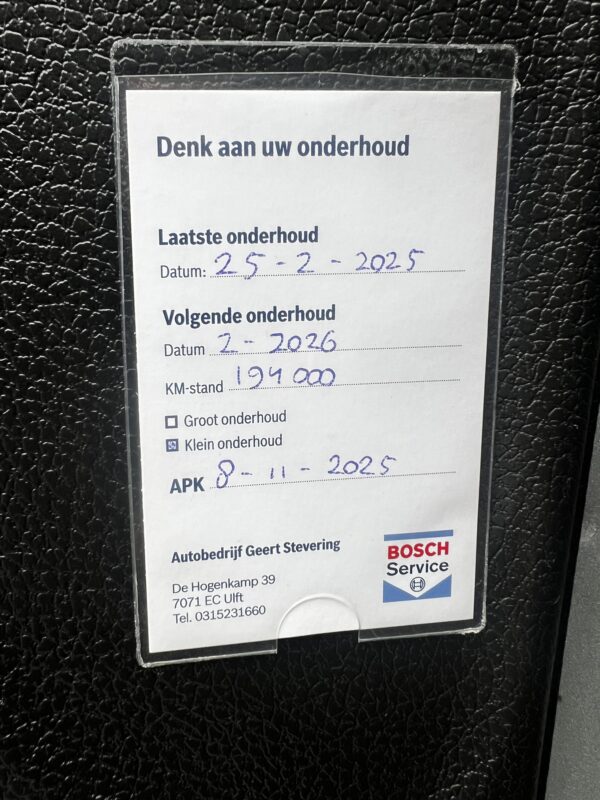 Denk aan uw onderhoud
Laatste onderhoud
Datum: 25-2-2025
Volgende onderhoud
Datum 2-2026
KM-stand 194 000
Groot onderhoud
Klein onderhoud
APK 8-11-2025
Autobedrijf Geert Stevering
De Hogenkamp 39
7071 EC Ulft
Tel. 0315231660
BOSCH
Service